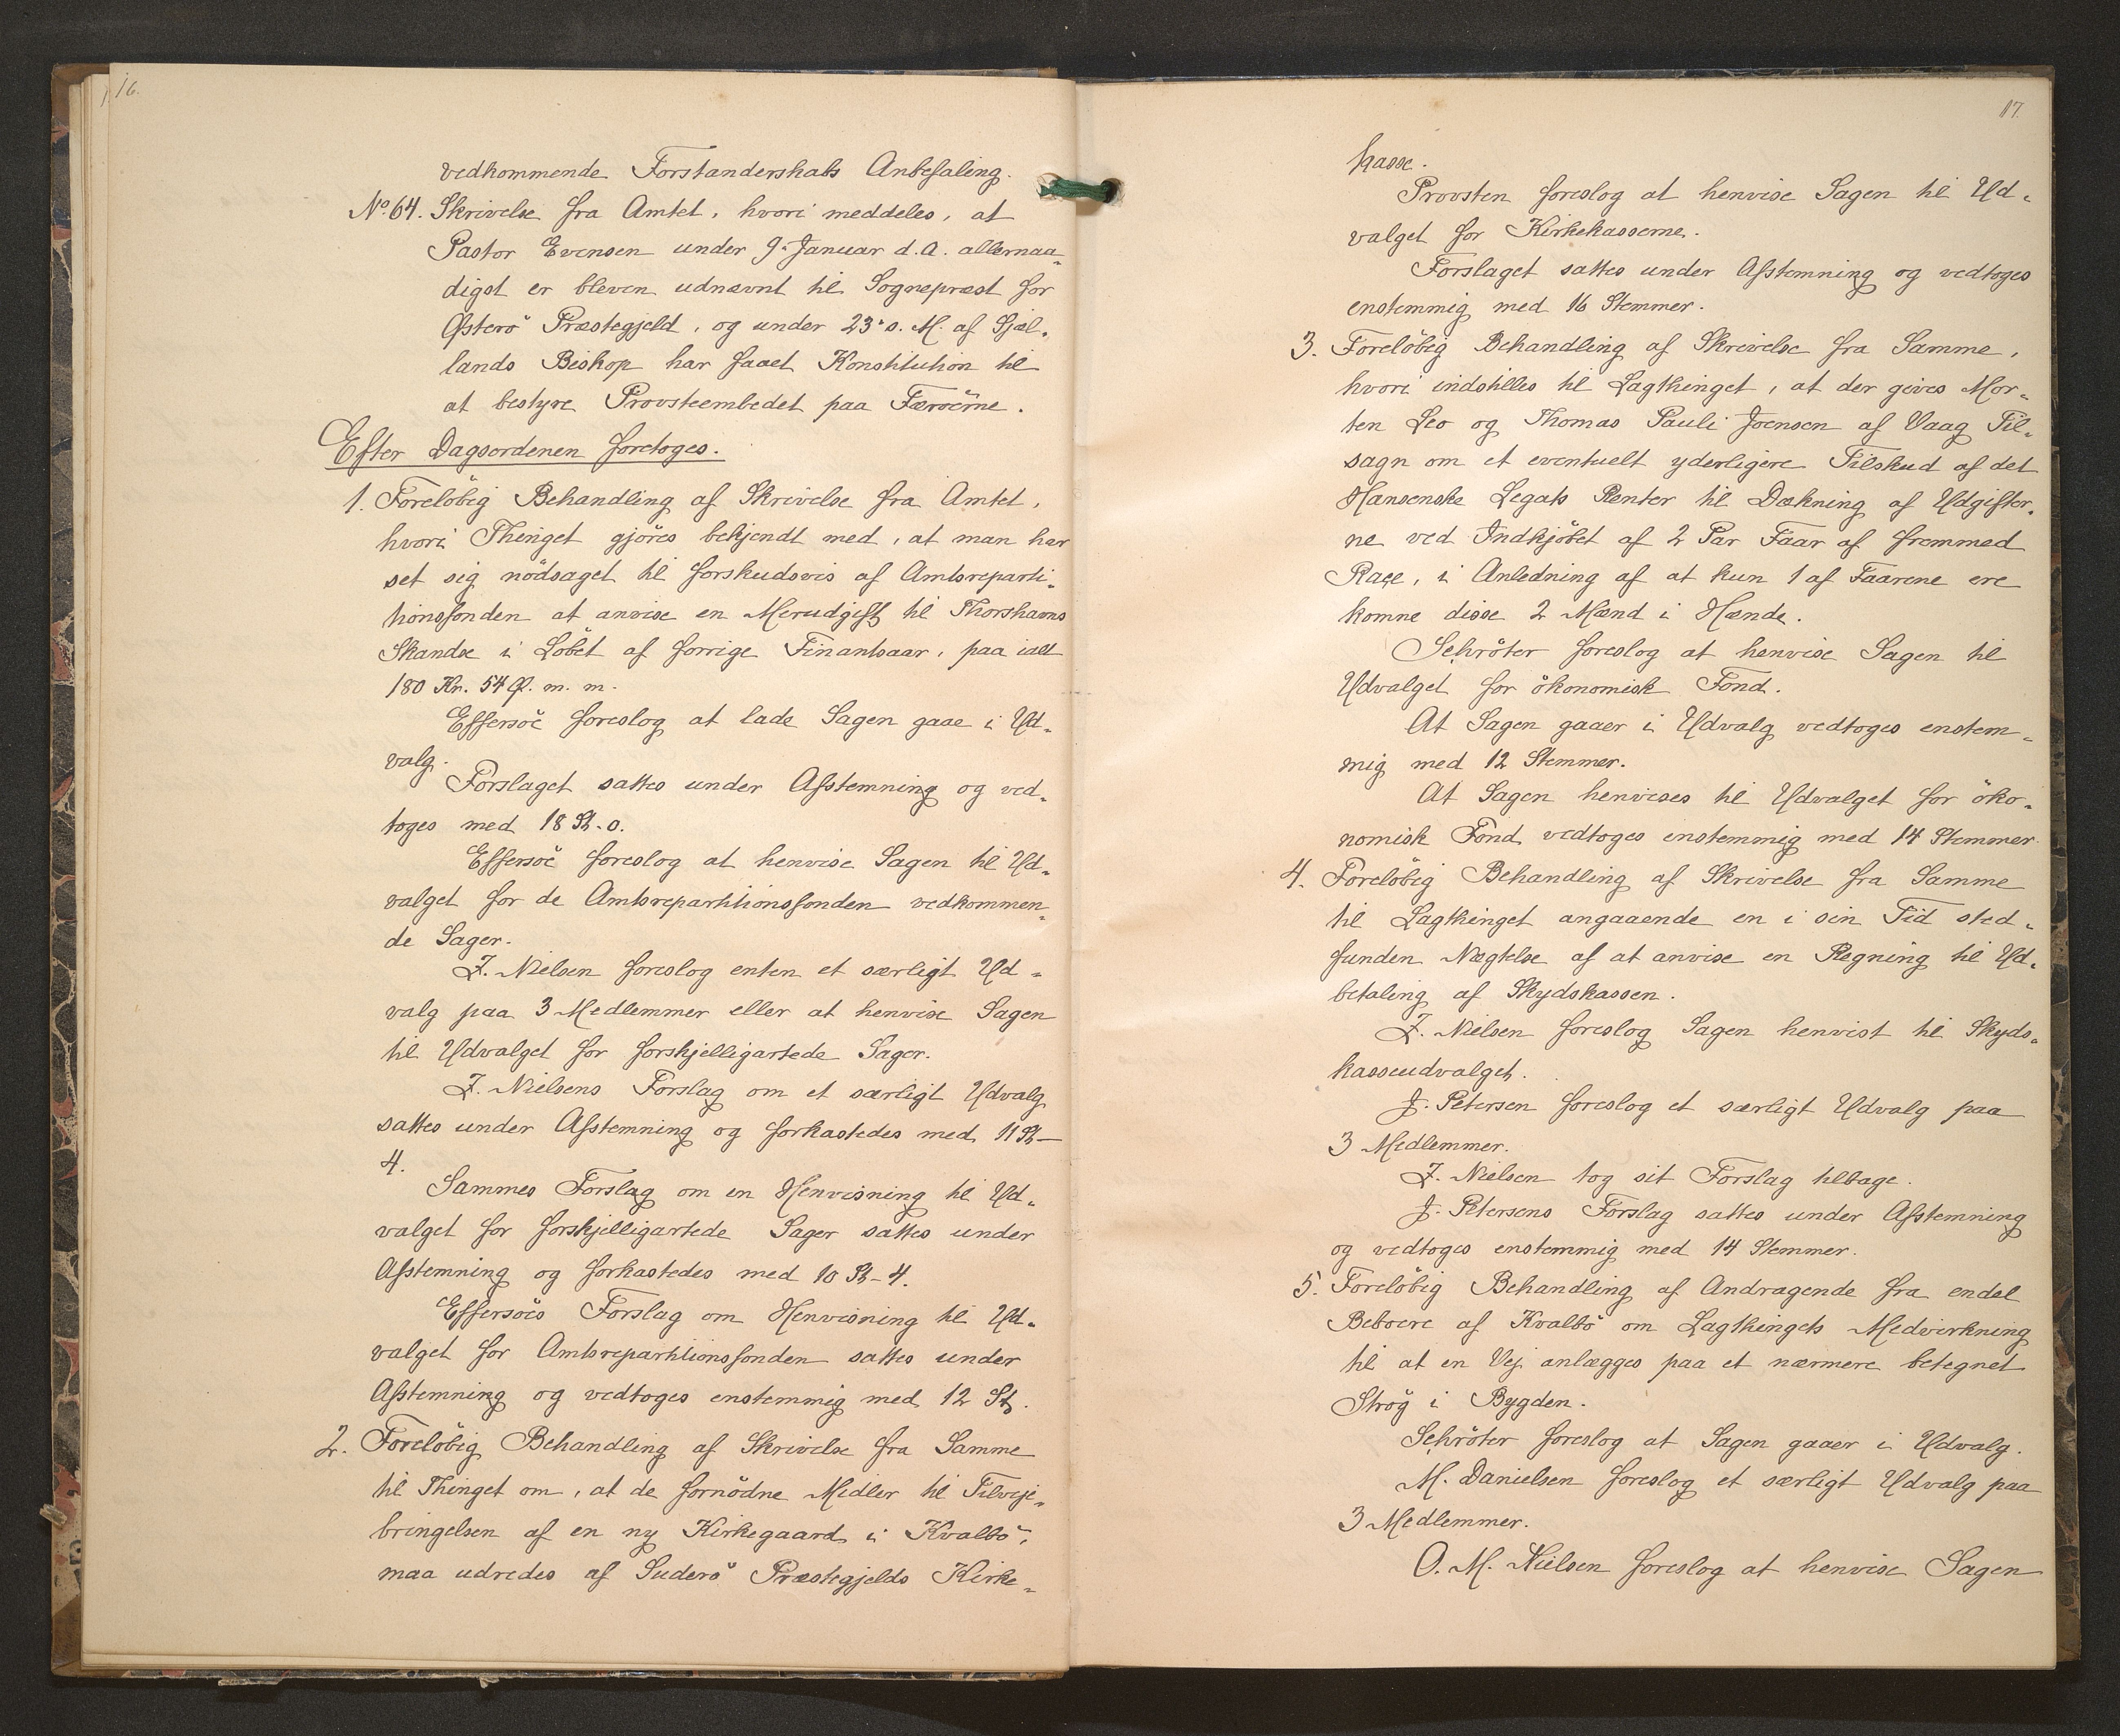 16.
vedkommende Forstanderskabs Anbefaling.
No. 64. Skrivelse fra Amtet, hvori meddeles, at
Pastor Evensen under 9. Januar d. A. allernaa-
digst er bleven udnævnt til Sognepræst for
Østerö Præstegjeld, og under 23. s. M. af Sjæl-
lands Biskop har faaet Konstitution til
at bestyre Provsteembedet paa Færöerne.
Efter Dagsordenen foretoges.
1. Foreløbig Behandling af Skrivelse fra Amtet,
hvori Thinget gjöres bekjendt med, at man har
set sig nödsaget til forskudsvis af Amtsreparti-
tionsfonden at anvise en Merudgift til Thorshavns
Skandse i Löbet af forrige Finantsaar, paa ialt
180 Kr. 54 Ø. m. m.
Effersöe foreslog at lade Sagen gaae i Ud-
valg.
Forslaget sattes under Afstemning og ved-
toges med 18 St-0.
Effersöe foreslog at henvise Sagen til Ud-
valget for de Amtsrepartitionsfonden vedkommen-
de Sager.
Z. Nielsen foreslog enten et særligt Ud-
valg paa 3 Medlemmer eller at henvise Sagen
til Udvalget for forskjelligartede Sager.
Z. Nielsens Forslag om et særligt Udvalg
sattes under Afstemning og forkastedes med 11 St-
4.
Sammes Forslag om en Henvisning til Ud-
valget for forskjelligartede Sager sattes under
Afstemning og forkastedes med 10 St-4.
Effersöes Forslag om Henvisning til Ud-
valget for Amtsrepartitionsfonden sattes under
Afstemning og vedtoges enstemmig med 12 St.
2. Foreløbig Behandling af Skrivelse fra Samme
til Thinget om, at de fornödne Midler til Tilveje-
bringelsen af en ny Kirkegaard i Kvalbö,
maa udredes af Suderö Præstegjelds Kirke-
17.
kasse.
Provsten foreslog at henvise Sagen til Ud-
valget for Kirkekasserne.
Forslaget sattes under Afstemning og vedtoges
enstemmig med 16 Stemmer.
3. Foreløbig Behandling af Skrivelse fra Samme,
hvori indstilles til Lagthinget, at der gives Mor-
ten Leo og Thomas Pauli Joensen af Vaag Til-
sagn om et eventuelt yderligere Tilskud af det
Hansenske Legats Renter til Dækning af Udgifter-
ne ved Indkjöbet af 2 Par Faar af fremmed
Raçe, i Anledning af at kun 1 af Faarene ere
komne disse 2 Mænd i Hænde.
Schröter foreslog at henvise Sagen til
Udvalget for ökonomisk Fond.
At Sagen gaaer i Udvalg vedtoges enstem-
mig med 12 Stemmer.
At Sagen henvises til Udvalget for öko-
nomisk Fond vedtoges enstemmig med 14 Stemmer.
4. Foreløbig Behandling af Skrivelse fra Samme
til Lagthinget angaaende en i sin Tid sted-
funden Nægtelse af at anvise en Regning til Ud-
betaling af Skydskassen.
Z. Nielsen foreslog Sagen henvist til Skyds-
kasseudvalget.
J. Petersen foreslog et særligt Udvalg paa
3 Medlemmer.
Z. Nielsen tog sit Forslag tilbage.
J. Petersens Forslag sattes under Afstemning
og vedtoges enstemmig med 14 Stemmer.
5. Foreløbig Behandling af Andragende fra endel
Beboere af Kvalbö om Lagthingets Medvirkning
til at en Vej anlægges paa et nærmere betegnet
Strög i Bygden.
Schröter foreslog at Sagen gaaer i Udvalg.
M. Danielsen foreslog et særligt Udvalg paa
3 Medlemmer.
O. M. Nielsen foreslog at henvise Sagen